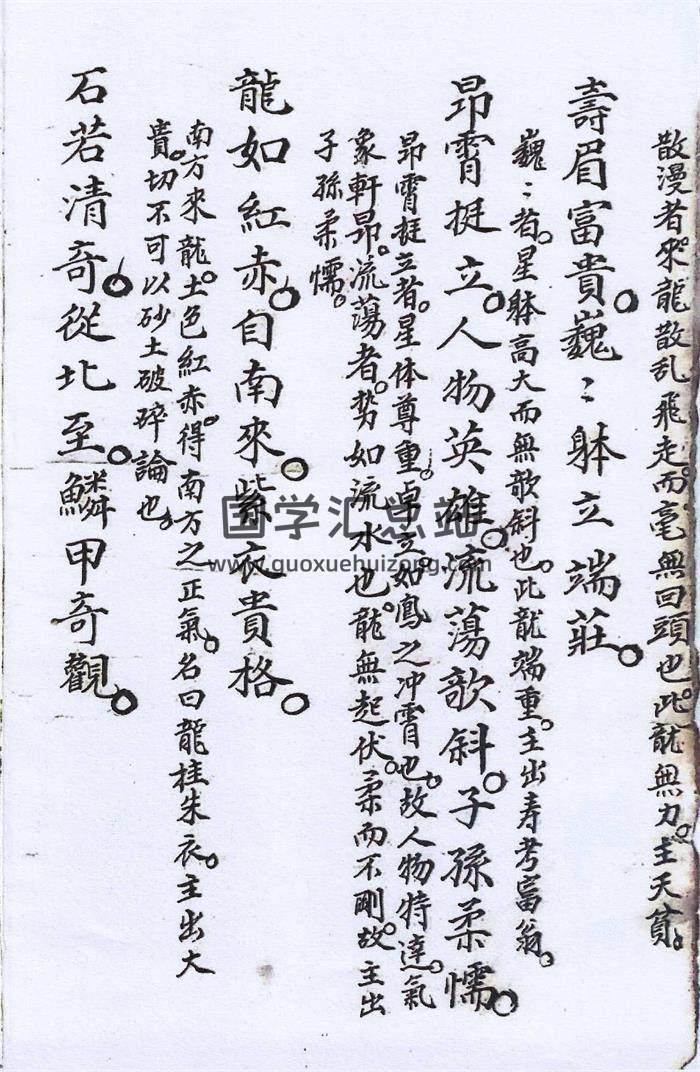 散漫者。來龍散乱飛走。而毫無回頭也。此龍無力。主夭貧。
壽眉富貴。巍〻躰立端莊。
巍〻者。星躰高大而無欹斜也。此龍端重。主出寿考富翁。
昂霄挺立。人物英雄。流蕩欹斜。子孫柔懦。
昂霄挺立者。星体尊重。卓立。如鳳之冲霄也。故人物特達。氣
象軒昂。流蕩者。势如流水也。龍無起伏。柔而不剛。故主出
子孫柔懦。
龍如紅赤。自南來。紫衣貴格。
南方來龍。土色紅赤。得南方之正氣。名曰龍挂朱衣。主出大
貴。切不可以砂土破碎論也。
石若清奇。從北至。鱗甲奇觀。
国学汇总站
www.guoxuehuizong.com